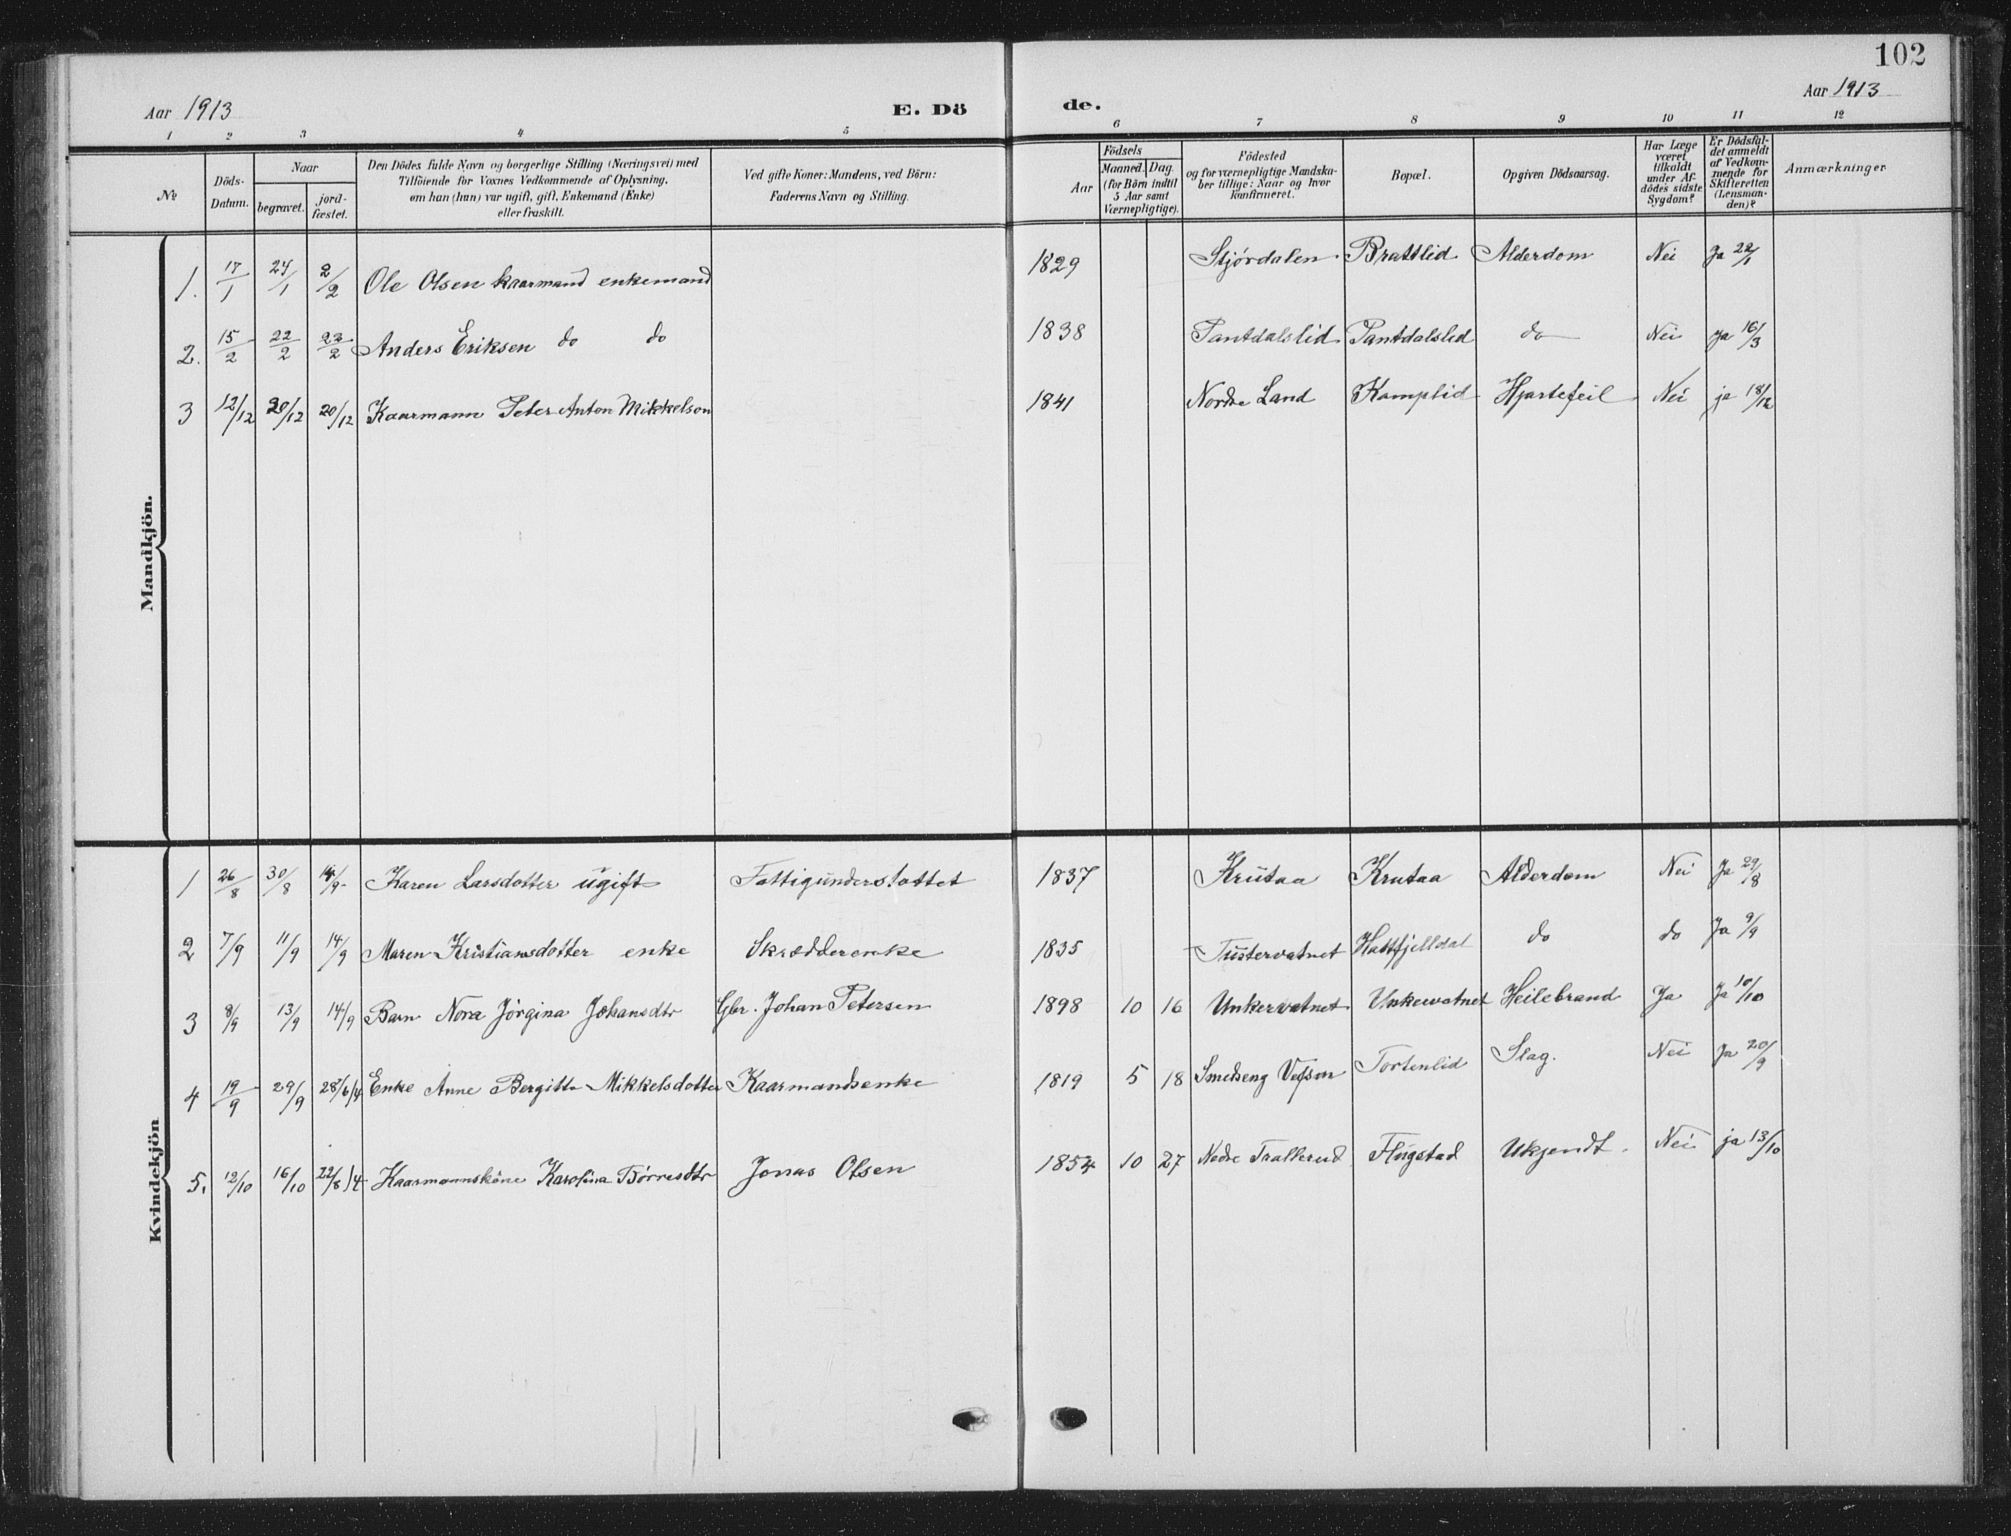 102
Aar 1913 E. Dö de. Aar 1913
1 2 3 4 5 6 7 8 9 10 11 12
№ Döds-Datum. Naar begravet. jord-fæstet. Den Dödes fulde Navn og borgerlige Stilling (Næringsvei) med Tilföiende for Voxnes Vedkommende af Oplysning, om han (hun) var ugift, gift, Enkemand (Enke) eller fraskilt. Ved gifte Koner: Mandens, ved Börn: Faderens Navn og Stilling. Aar Födsels Maaned. Dag. (for Börn indtil 5 Aar samt Værnepligtige). Födested og for værnepligtige Mandskaber tillige: Naar og hvor konfirmeret. Bopæl. Opgiven Dödsaarsag. Har Læge været tilkaldt under Afdödes sidste Sygdom? Er Dödsfaldet anmeldt af Vedkommende for Skifteretten (Lensmanden)? Anmærkninger
Mandkjön.
1. 17/1 24/1 2/2 Ole Olsen kaarmand enkemand 1829 Stjørdalen Brattlid Alderdom Nei Ja 22/1
2. 15/2 22/2 23/2 Anders Eriksen do do 1838 Pantdalslid Pantdalslid do Nei ja 16/3
3 12/12 20/12 20/12 Kaarmann Peter Anton Mikkelson 1841 Nordre Land Kamplid Hjertefeil Nei ja 18/12
Kvindekjön
1 26/8 30/8 14/9 Karen Larsdotter ugift Fattigunderstøttet 1837 Krutaa Krutaa Alderdom Nei Ja 29/8
2 7/9 11/9 14/9 Maren Kristiansdotter enke Skrædderenke 1835 Tustervatnet Hattfjelldal do do Ja 9/9
3 8/9 13/9 14/9 Barn Nora Jørgina Johansdtr Gbr. Johan Petersen 1898 10 16 Unkervatnet Unkervatnet Heilebrand Ja Ja 10/10
4 19/9 29/9 28/6 14 Enke Anne Bergitte Mikkelsdotter Kaarmandsenke 1819 5 18 Smedseng Vefson Tortenlid Slag. Nei Ja 20/9
5. 12/10 16/10 22/8 14 Kaarmannskone Karolina Tørresdtr Jonas Olsen 1854 10 27 Nedre Trallerud Flugstad Ukjendt. Nei ja 13/10